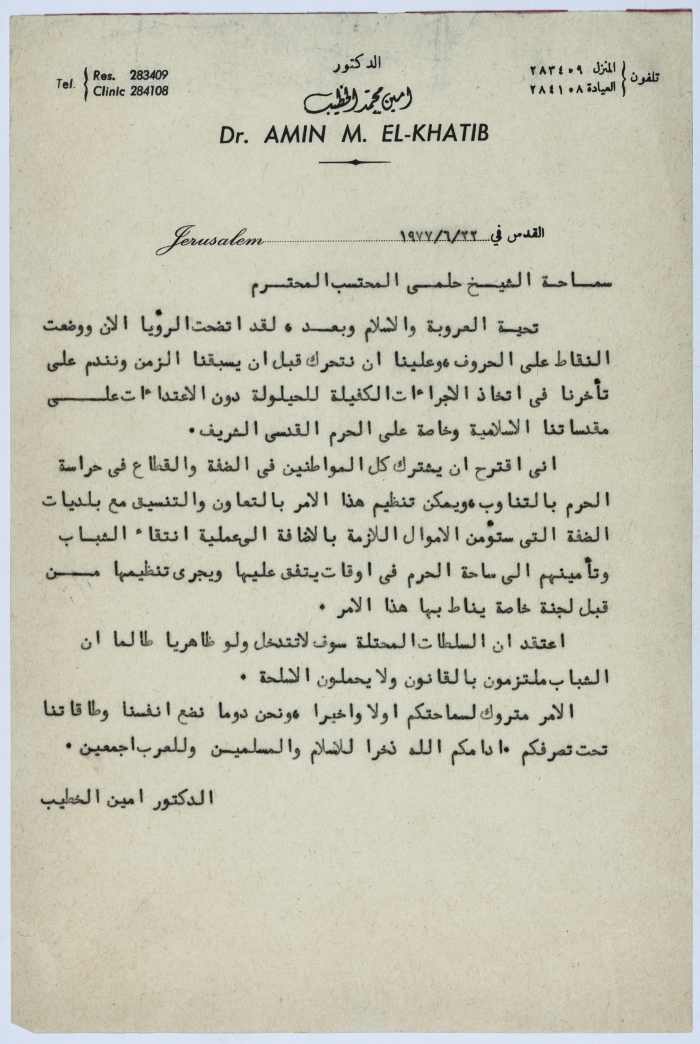 الدكتور
Tel. { Res. 283409
Clinic 284108
تلفون { المنزل ٢٨٣٤٠٩
العيادة ٢٨٤١٠٨
امين محمد الخطيب
Dr. AMIN M. EL-KHATIB
Jerusalem القدس في ١٩٧٧/٦/٢٢
سماحة الشيخ حلمي المحتسب المحترم
تحية العروبة والاسلام وبعد ، لقد اتضحت الرؤيا الان ووضعت
النقاط على الحروف ،وعلينا ان نتحرك قبل ان يسبقنا الزمن ونندم على
تأخرنا في اتخاذ الاجراءات الكفيلة للحيلولة دون الاعتداءات على
مقدساتنا الاسلامية وخاصة على الحرم القدسي الشريف .
اني اقترح ان يشترك كل المواطنين في الضفة والقطاع في حراسة
الحرم بالتناوب ،ويمكن تنظيم هذا الامر بالتعاون والتنسيق مع بلديات
الضفة التي ستؤمن الاموال اللازمة بالاضافة الى عملية انتقاء الشباب
وتأمينهم الى ساحة الحرم في اوقات يتفق عليها ويجرى تنظيمها من
قبل لجنة خاصة يناط بها هذا الامر .
اعتقد ان السلطات المحتلة سوف لاتتدخل ولو ظاهريا طالما ان
الشباب ملتزمون بالقانون ولا يحملون الاسلحة .
الامر متروك لسماحتكم اولا واخيرا ،ونحن دوما نضع انفسنا وطاقاتنا
تحت تصرفكم .ادامكم الله ذخرا للاسلام والمسلمين وللعرب اجمعين .
الدكتور امين الخطيب